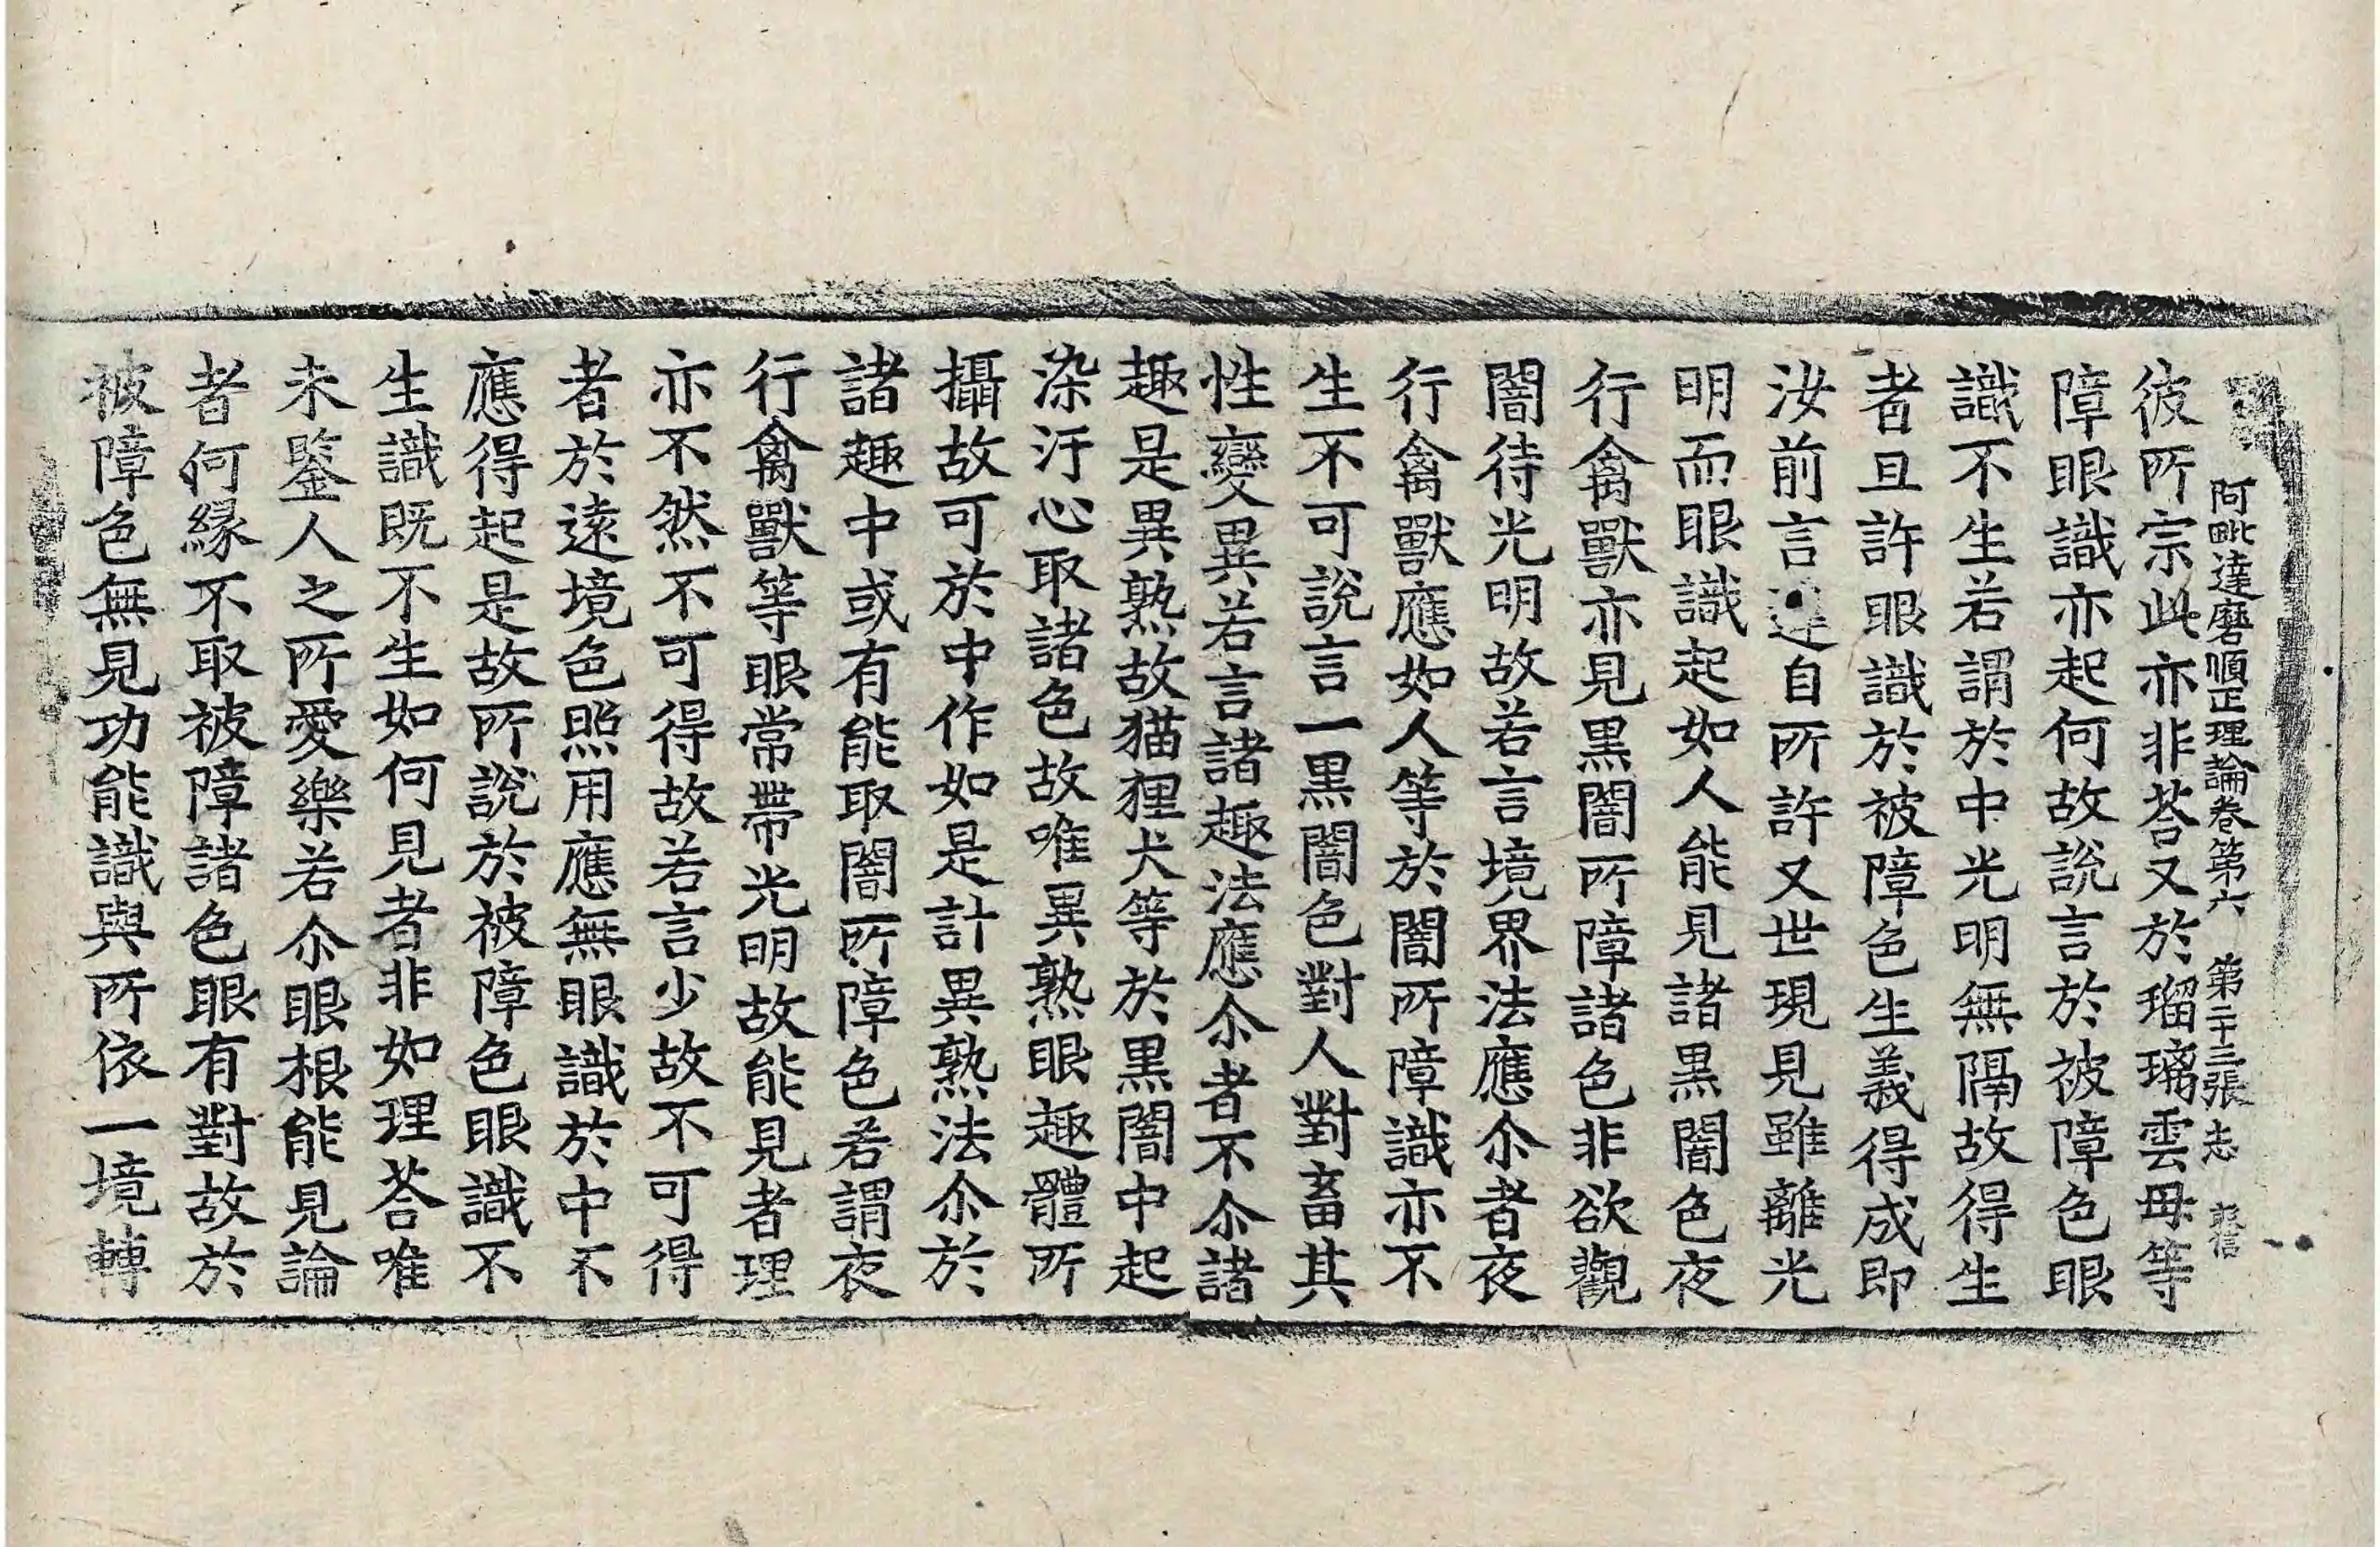 阿毗達磨順正理論卷第六 第二十三張 志
彼所宗此亦非荅又於瑠璃雲母等
障眼識亦起何故說言於被障色眼
識不生若謂於中光明無隔故得生
者且許眼識於被障色生義得成即
汝前言違自所許又世現見雖離光
明而眼識起如人能見諸黒闇色夜
行禽獸亦見黒闇所障諸色非欲觀
闇待光明故若言境界法應尒者夜
行禽獸應如人等於闇所障識亦不
生不可說言一黒闇色對人對畜其
性變異若言諸趣法應尒者不尒諸
趣是異熟故猫狸犬等於黒闇中起
染汙心取諸色故唯異熟眼趣體所
攝故可於中作如是計異熟法尒於
諸趣中或有能取闇所障色若謂夜
行禽獸等眼常帶光明故能見者理
亦不然不可得故若言少故不可得
者於遠境色照用應無眼識於中不
應得起是故所說於被障色眼識不
生識既不生如何見者非如理荅唯
未鑒人之所愛樂若尒眼根能見論
者何緣不取被障諸色眼有對故於
被障色無見功能識與所依一境轉